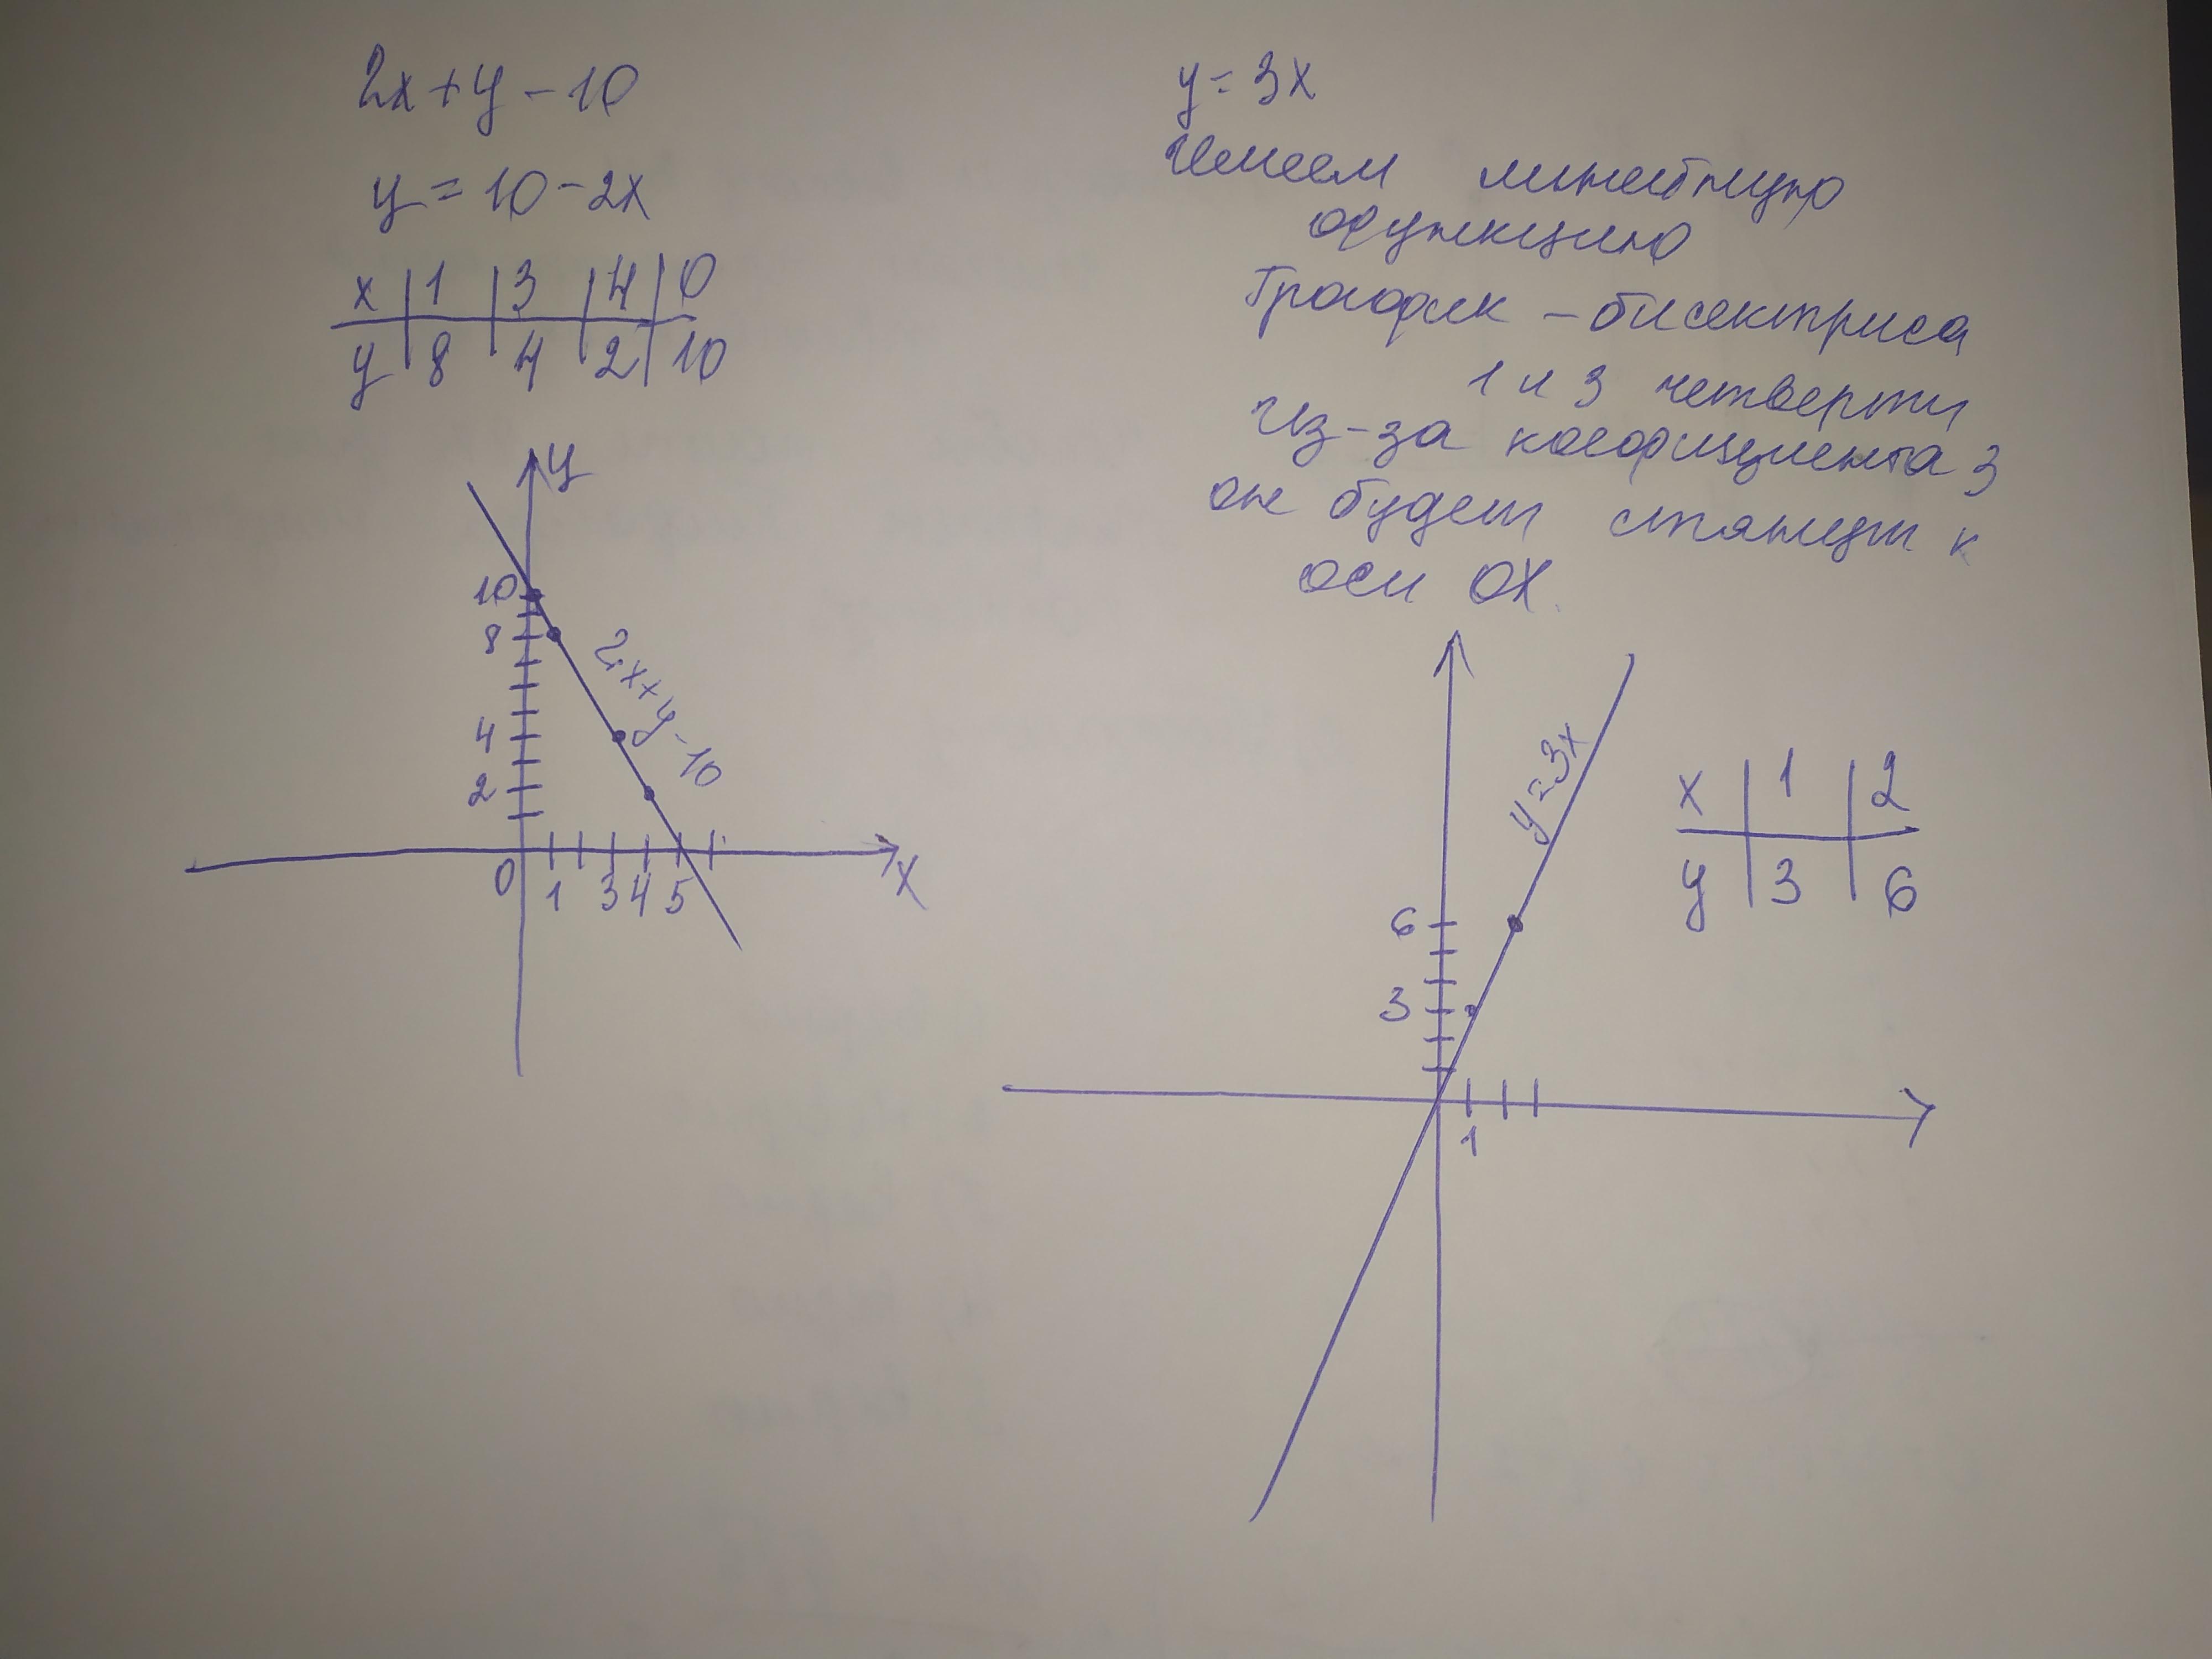 2x+y-10
y=10-2x
x | 1 | 3 | 4 | 0
y | 8 | 4 | 2 | 10
y
10
8
4
2
0 1 3 4 5 x
2x+y-10
y=3x
Имеем линейную
функцию
График - бисектриса
1 и 3 четверти
Из-за коефициента 3
он будет стянут к
оси OX.
y=3x
x | 1 | 2
y | 3 | 6
6
3
1